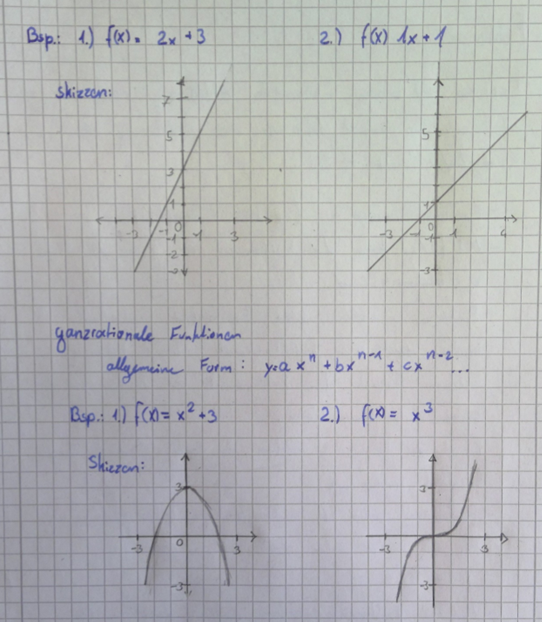 Bsp.: 1.) f(x) = 2x + 3 2.) f(x) 1x + 1
Skizzen:
7
5 5
3
1 1
-3 -1 0 1 3 -3 -1 0 1 4
-1 -1
-2
-3 -3
ganzrationale Funktionen
allgemeine Form: y=a xⁿ + bxⁿ⁻¹ + cxⁿ⁻² ...
Bsp.: 1.) f(x) = x² + 3 2.) f(x) = x³
Skizzen:
3 3
-3 0 3 -3 3
-3 -3